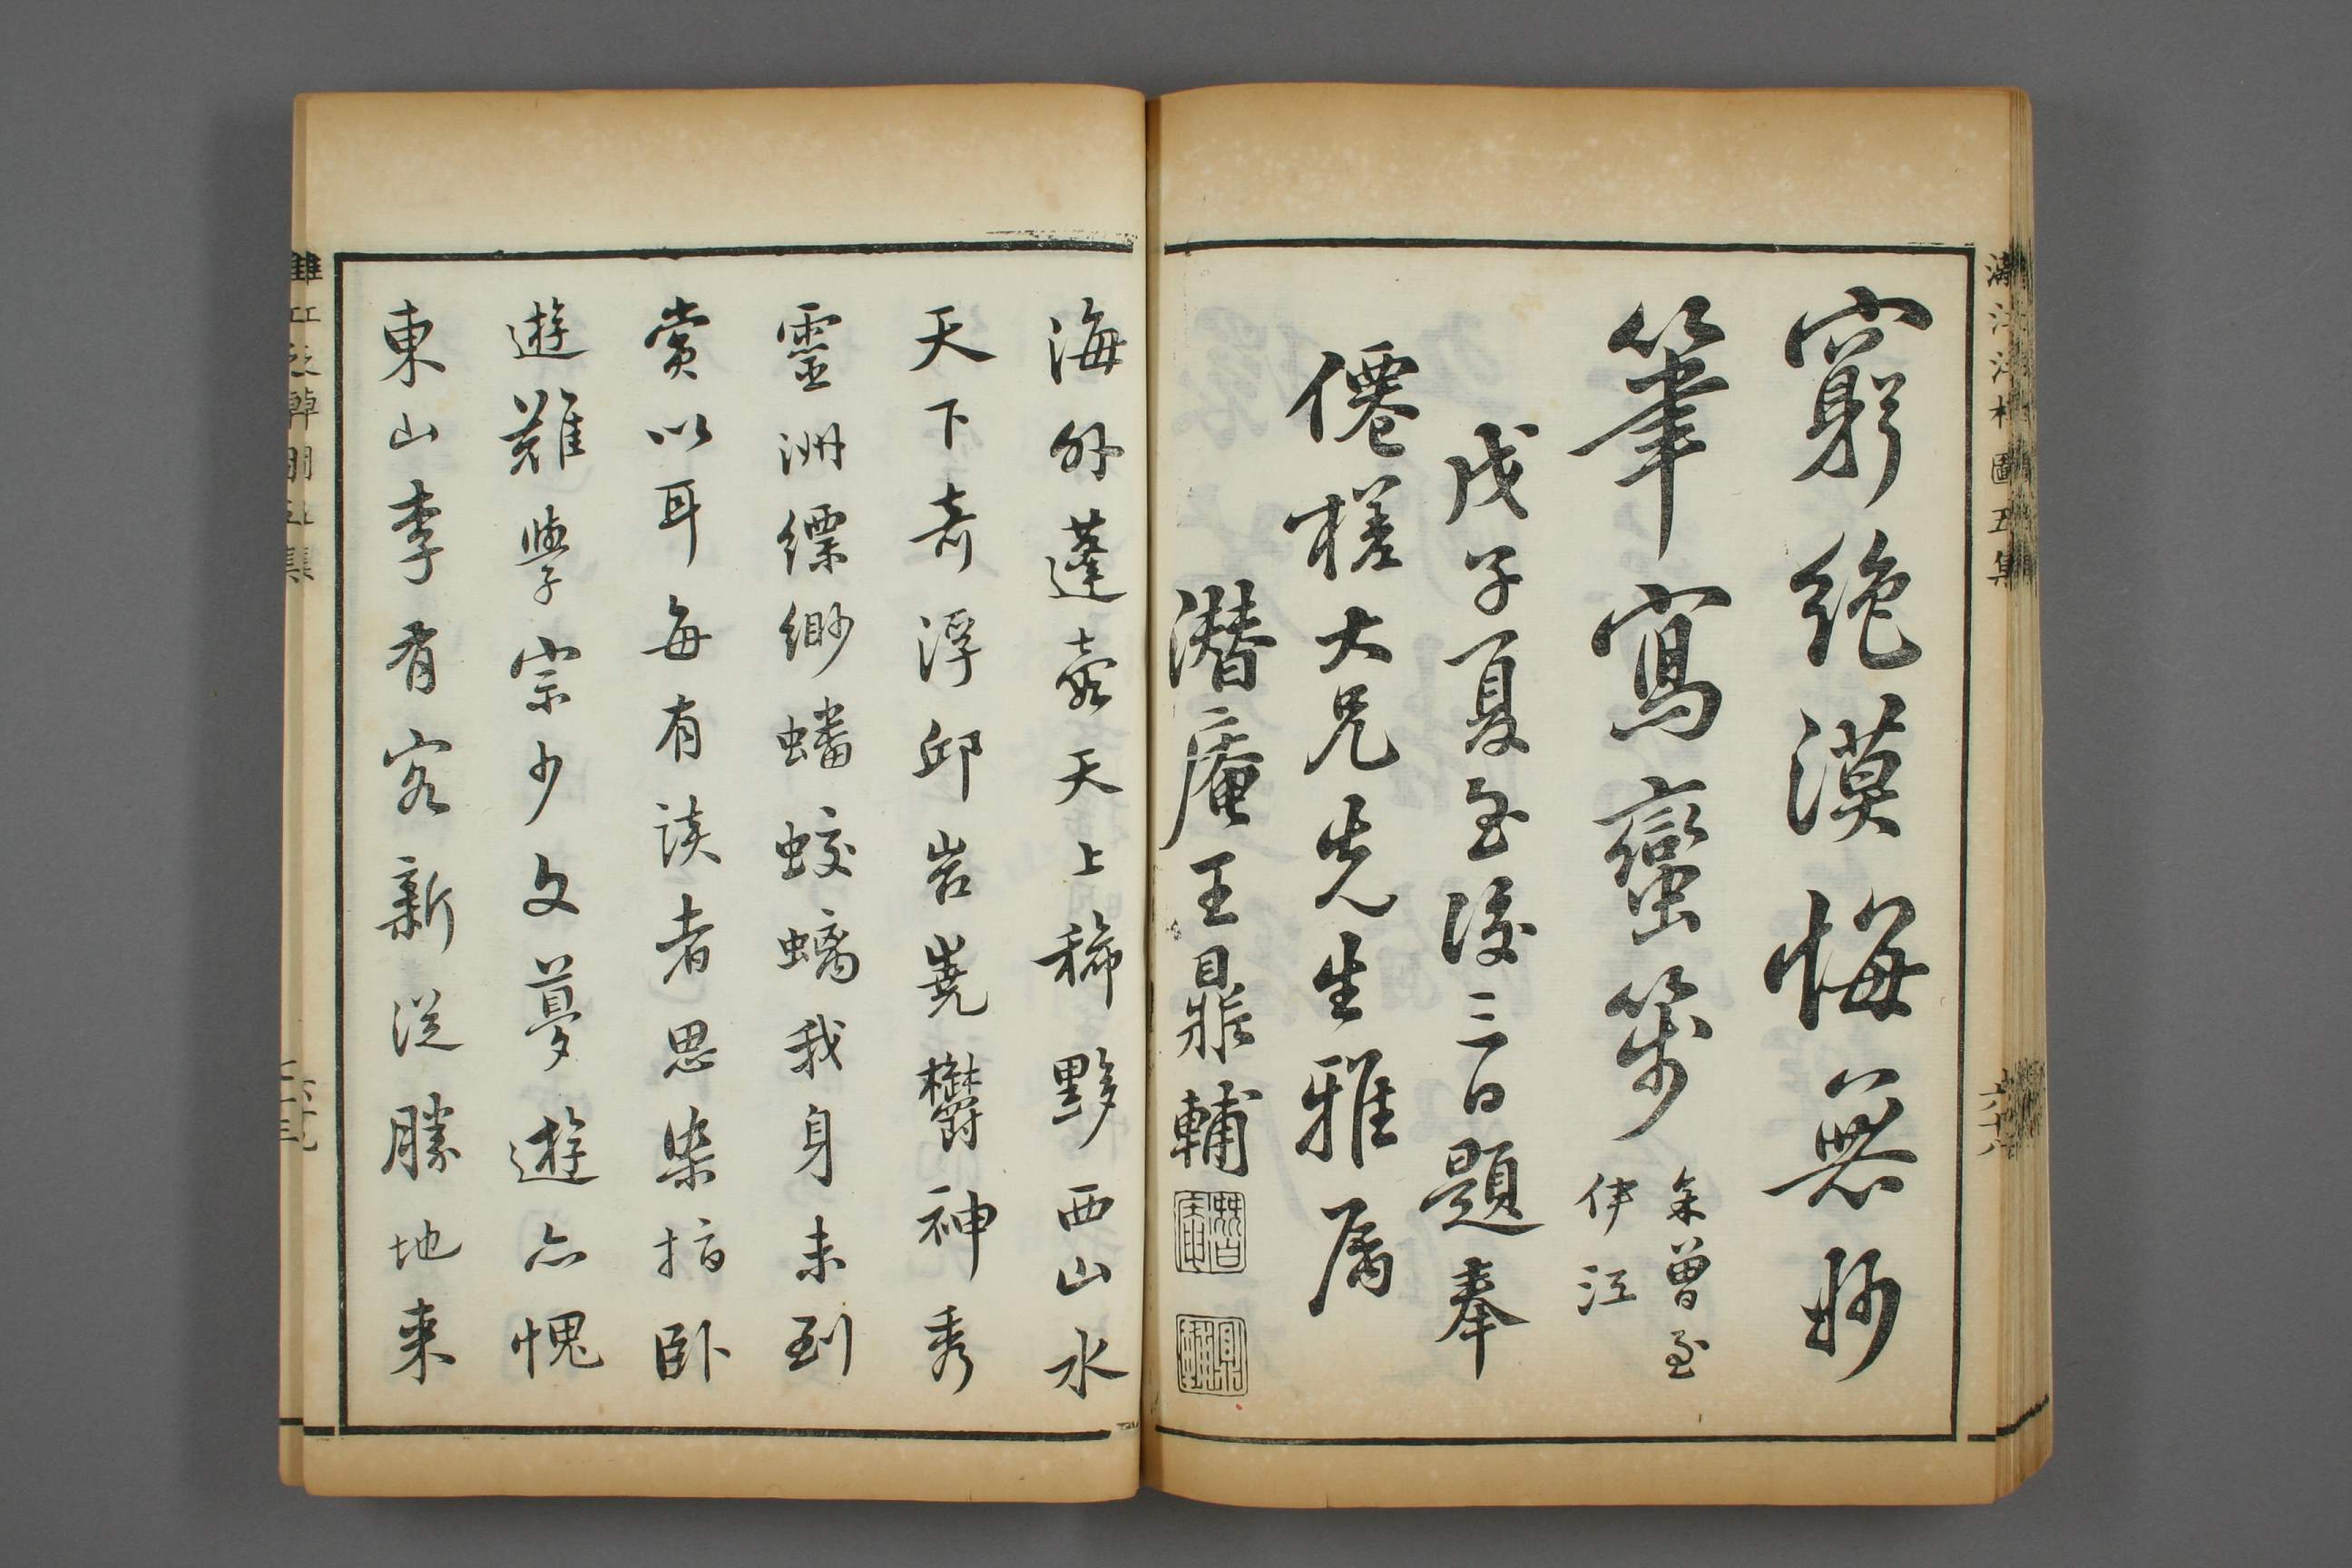 窮絶漠悔無妙
筆寫蠻箋
余曾至
伊江
戊子夏至後三日題奉
僊槎大兄先生雅屬
潛庵王鼎輔
海外蓬壺天上稀黟西山水
天下奇浮邱岩嶤欝神秀
靈洲縹緲蟠蛟螭我身未到
賞以耳每有談者思染指卧
遊難學宗少文夢遊亦愧
東山李有客新從勝地来